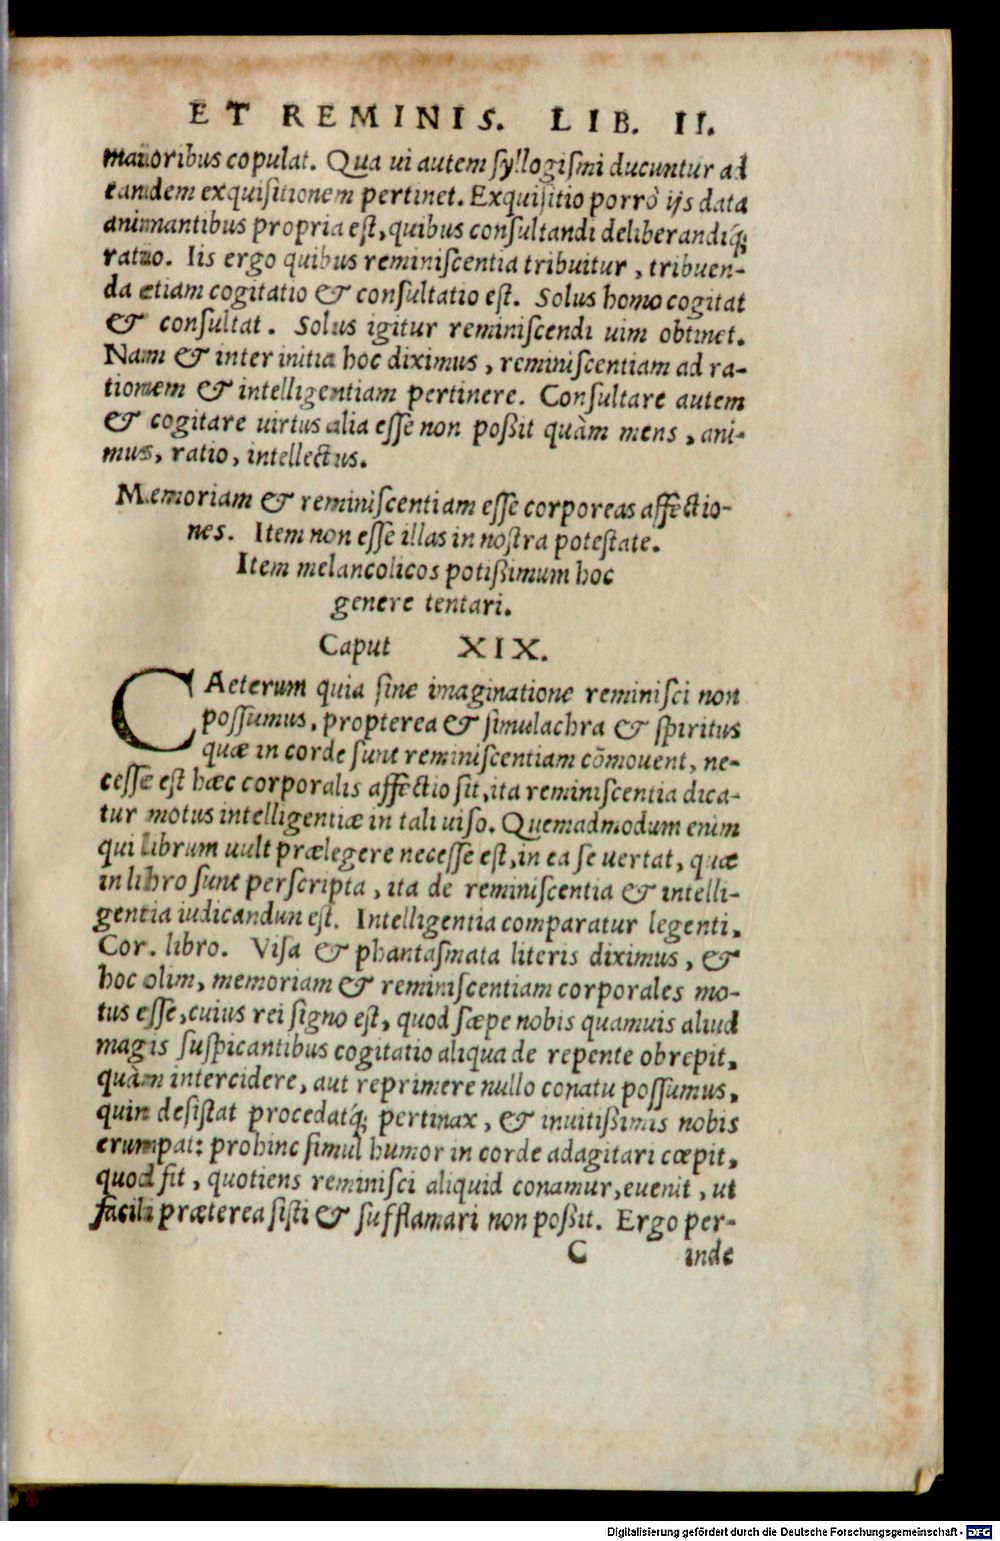 ET REMINIS. LIB. II.
maioribus copulat. Qua ui autem syllogismi ducuntur ad
eamdem exquisitionem pertinet. Exquisitio porrò ijs data
animantibus propria est, quibus consultandi deliberandiq́;
ratio. Iis ergo quibus reminiscentia tribuitur, tribuen-
da etiam cogitatio & consultatio est. Solus homo cogitat
& consultat. Solus igitur reminiscendi uim obtinet.
Nam & inter initia hoc diximus, reminiscentiam ad ra-
tionem & intelligentiam pertinere. Consultare autem
& cogitare uirtus alia esse non poßit quàm mens, ani-
mus, ratio, intellectus.
Memoriam & reminiscentiam esse corporeas affectio-
nes. Item non esse illas in nostra potestate.
Item melancolicos potißimum hoc
genere tentari.
Caput XIX.
CAeterum quia sine imaginatione reminisci non
possumus, propterea & simulachra & spiritus
quæ in corde sunt reminiscentiam cōmouent, ne-
cesse est hæc corporalis affectio sit, ita reminiscentia dica-
tur motus intelligentiæ in tali uiso. Quemadmodum enim
qui librum uult prælegere necesse est, in ea se uertat, quæ
in libro sunt perscripta, ita de reminiscentia & intelli-
gentia iudicandun est. Intelligentia comparatur legenti.
Cor. libro. Visa & phantasmata literis diximus, &
hoc olim, memoriam & reminiscentiam corporales mo-
tus esse, cuius rei signo est, quod sæpe nobis quamuis aliud
magis suspicantibus cogitatio aliqua de repente obrepit,
quàm intercidere, aut reprimere nullo conatu possumus,
quin desistat procedatq́; pertinax, & inuitißimis nobis
erumpat: prohinc simul humor in corde adagitari cœpit,
quod fit, quotiens reminisci aliquid conamur, euenit, ut
facilè præterea sisti & sufflamari non poßit. Ergo per-
C inde
Digitalisierung gefördert durch die Deutsche Forschungsgemeinschaft - DFG